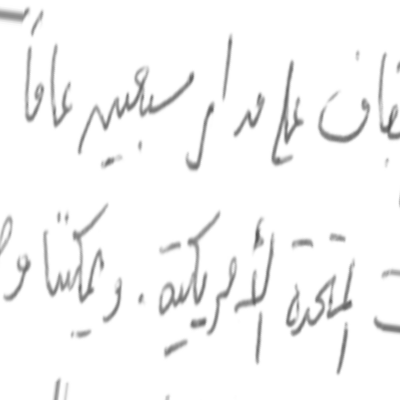 على مدار سبعين عامًا
المتحدة الأمريكية. ويمكننا